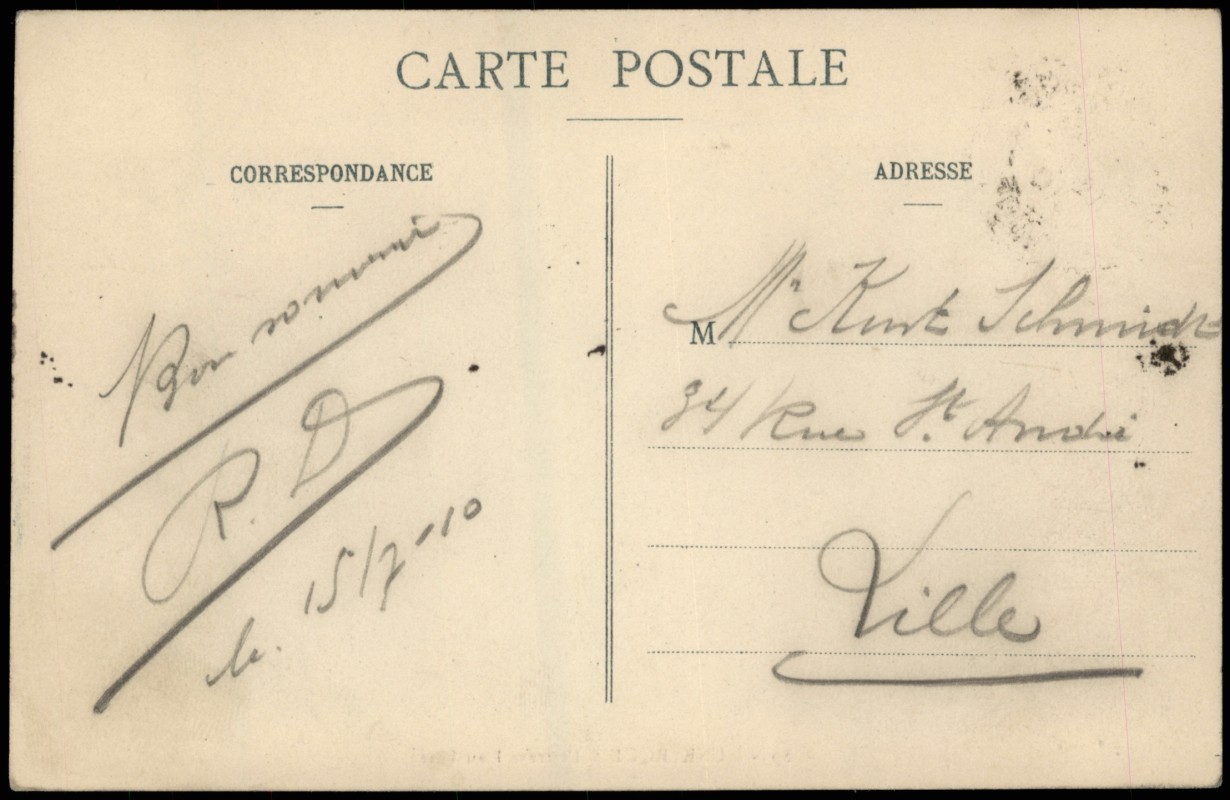 CARTE POSTALE
CORRESPONDANCE
Bon souvenir
R. D
le. 15/7 1910
ADRESSE
M Mr Kurt Schmidt
34 Rue St. André
Ville